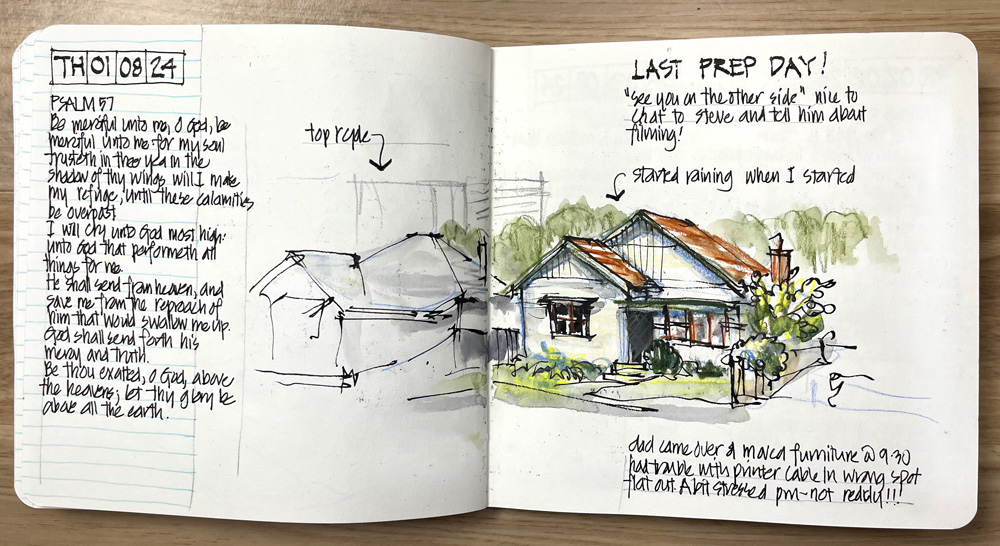 TH 01 08 24
PSALM 57
Be merciful unto me, O God, be
merciful unto me for my soul
trusteth in thee yea in the
shadow of thy wings will I make
my refuge, until these calamities
be overpast
I will cry unto God most high
unto God that performeth all
things for me.
He shall send from heaven, and
save me from the reproach of
him that would swallow me up.
God shall send forth his
mercy and truth.
Be thou exalted, O God, above
the heavens; let thy glory be
above all the earth.
top
LAST PREP DAY!
"see you on the other side" nice to
chat to steve and tell him about
filming!
started raining when I started
dad came over & moved furniture @ 9.30
had trouble with printer cable in wrong spot
flat out. A bit stressed pm - not ready!!!